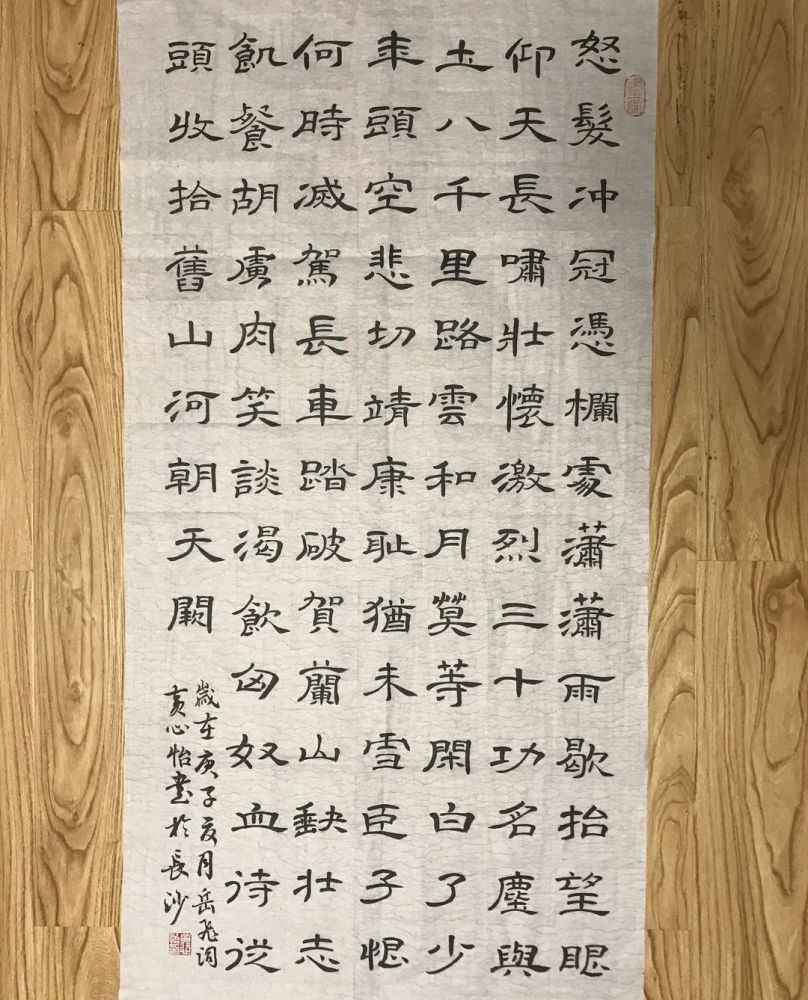 怒髮冲冠憑欄處瀟瀟雨歇抬望眼
仰天長嘯壯懷激烈三十功名塵與
土八千里路雲和月莫等閑白了少
年頭空悲切靖康耻猶未雪臣子恨
何時滅駕長車踏破賀蘭山缺壯志
飢餐胡虜肉笑談渴飲匈奴血待從
頭收拾舊山河朝天闕
歲在庚子夏月岳飛詞
黃心怡書於長沙